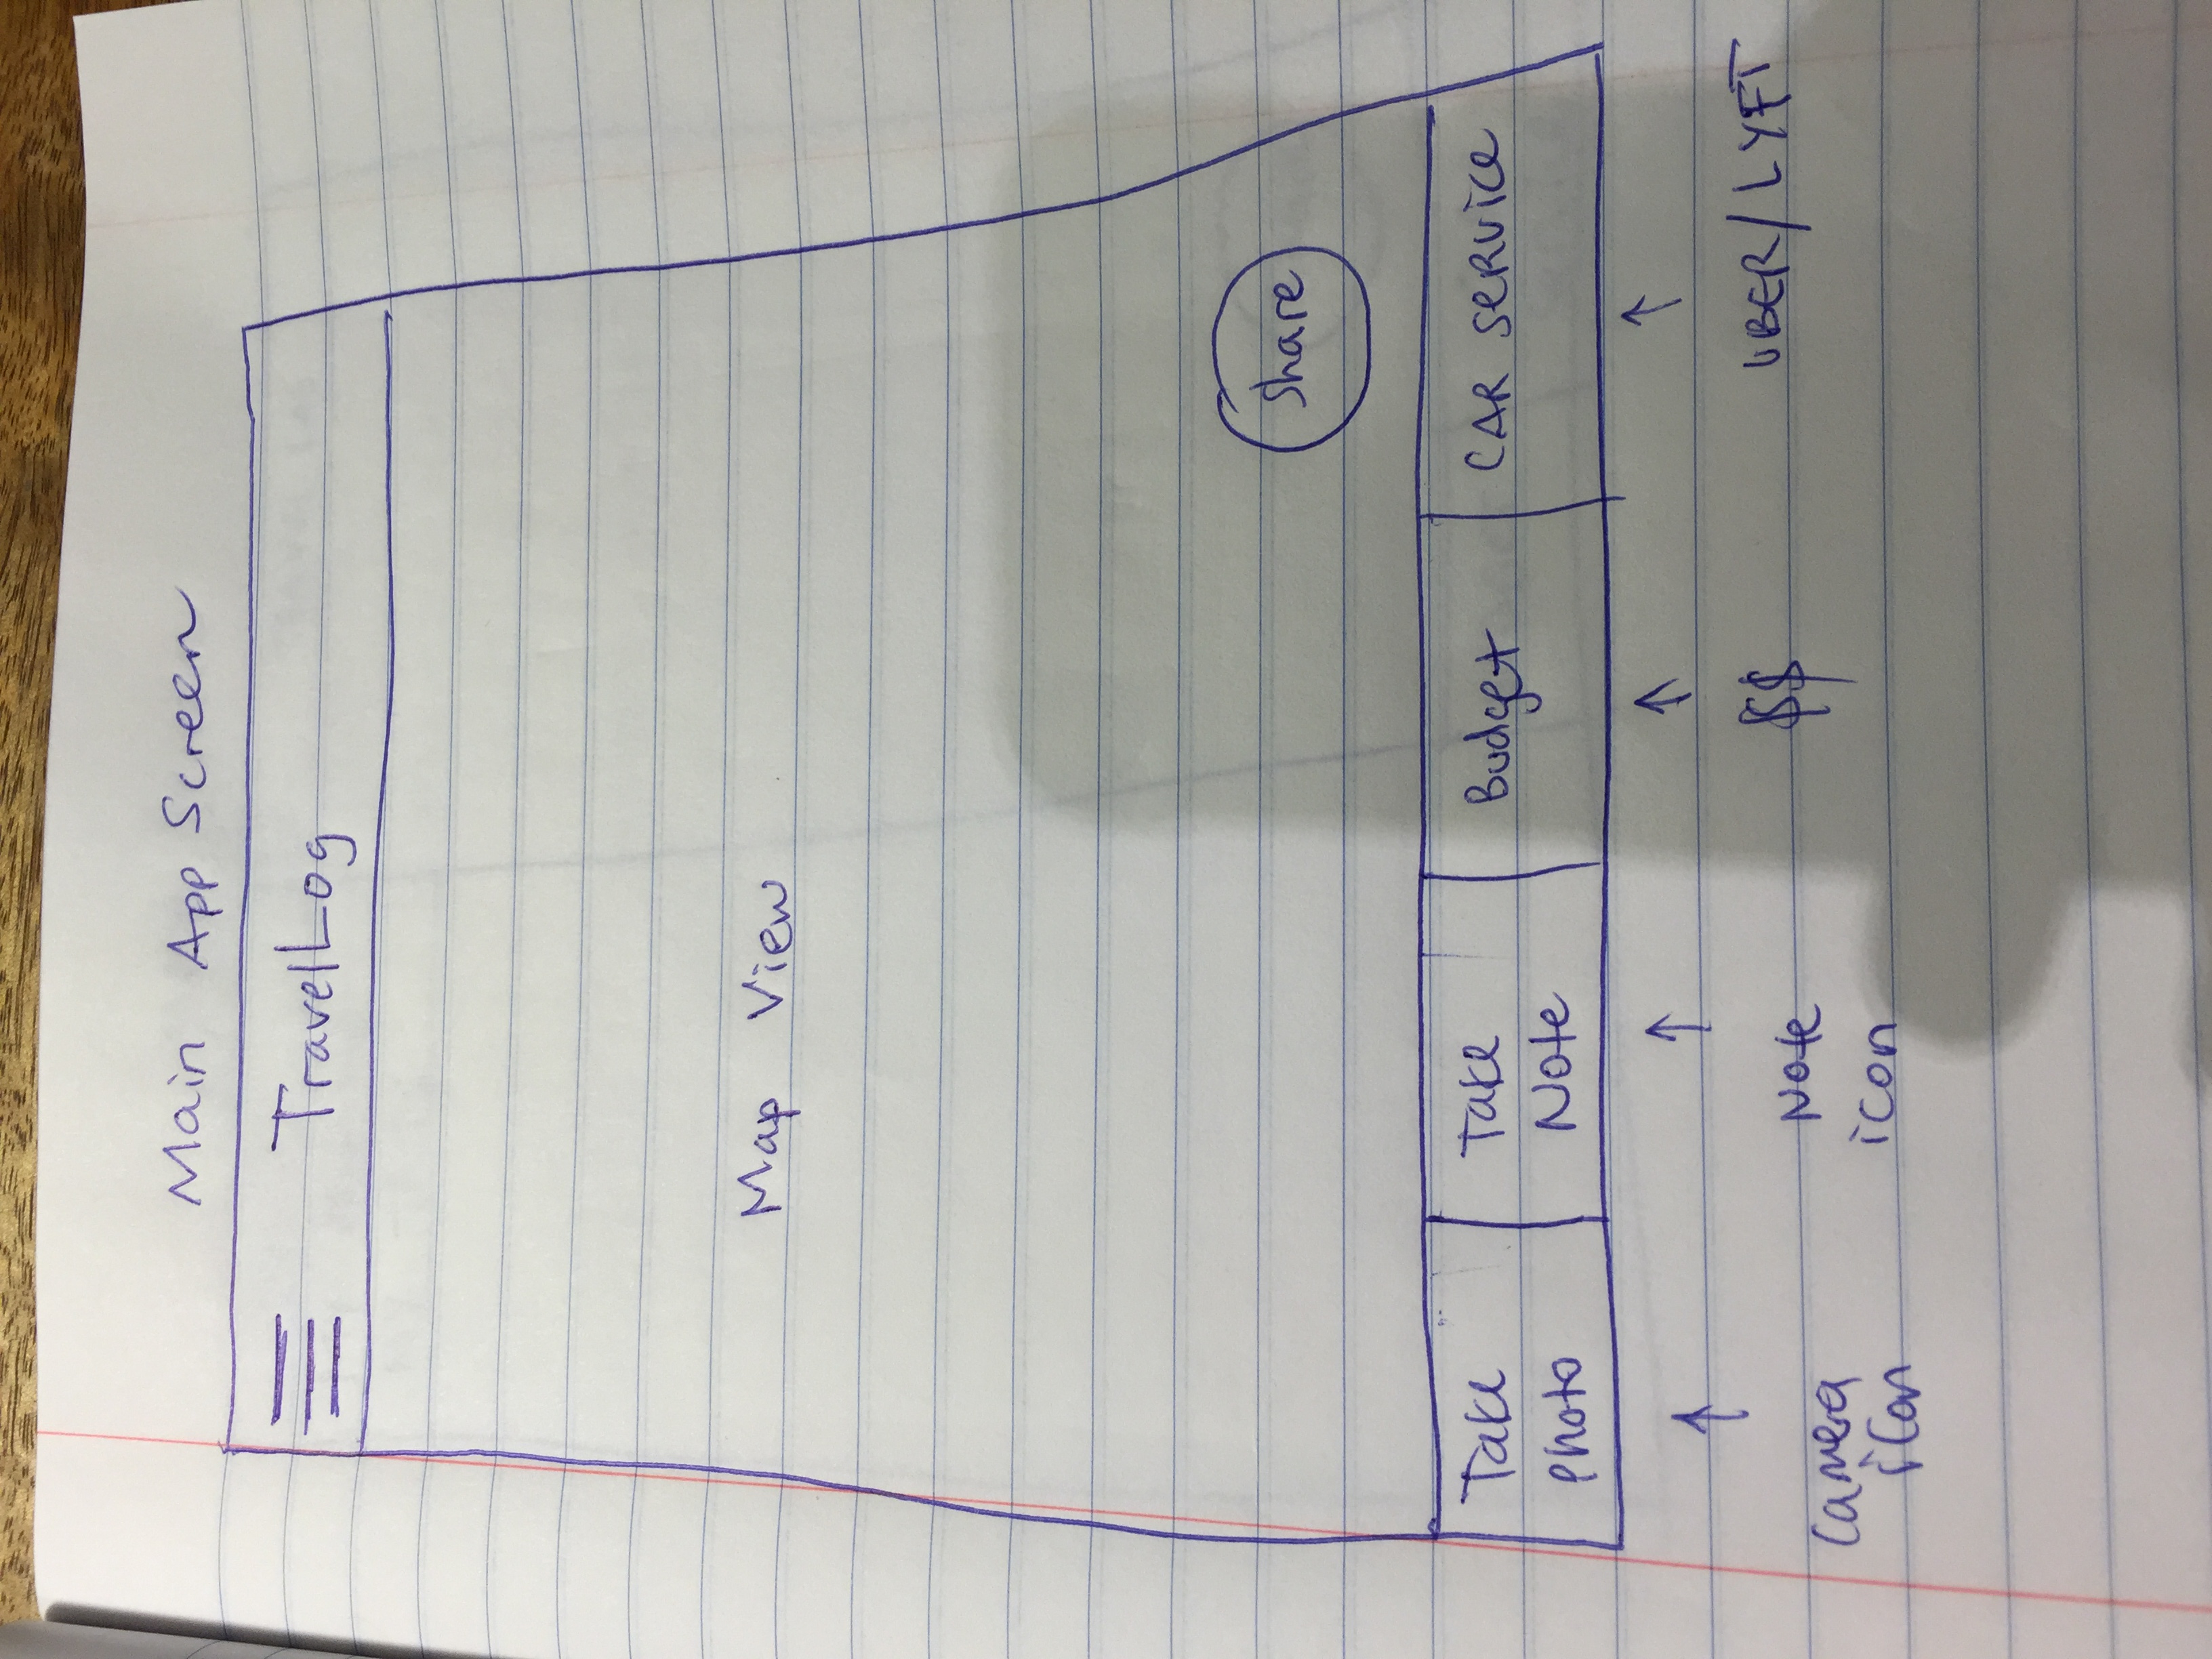 Main App Screen
TravelLog
Map View
Share
Take
Photo
Take
Note
Budget
CAR SERVICE
Camera
icon
Note
icon
$$
UBER/LYFT